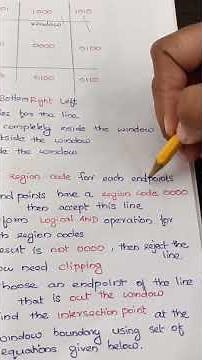 01 1000 1010
window
0000 0100
0101 0110
Bottom Right Left
es for the line
completely inside the window
tside the window
de the window
Region code for each endpoints
nd points have a region code 0000
then accept this line
form Logical AND operation for
th region codes
esult is not 0000, then reject the
line.
ou need clipping
hoose an endpoint of the line
that is out the window
ind the intersection point at the
indow boundary using set of
equations given below.